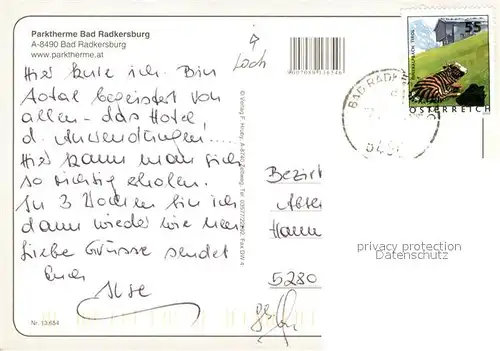 Parktherme Bad Radkersburg
A-8490 Bad Radkersburg
www.parktherme.at
Loch
Hier kure ich. Bin
total begeistert von
allem - das Hotel
d. Anwendungen!....
Hier kann man sich
so richtig erholen.
In 3 Wochen bin ich
dann wieder wie neu
Liebe Grüsse sendet
Euch
Ilse
Nr. 13/654
9007699116546
© Verlag F. Knuby, A-8740 Zeltweg, Tel. 03577/22492, Fax DW 4
55
ÖSTERREICH
BAD RADK
8490
Bezirt
Abte
Hann
5280
privacy protection
www.ansichtskarten-center.de